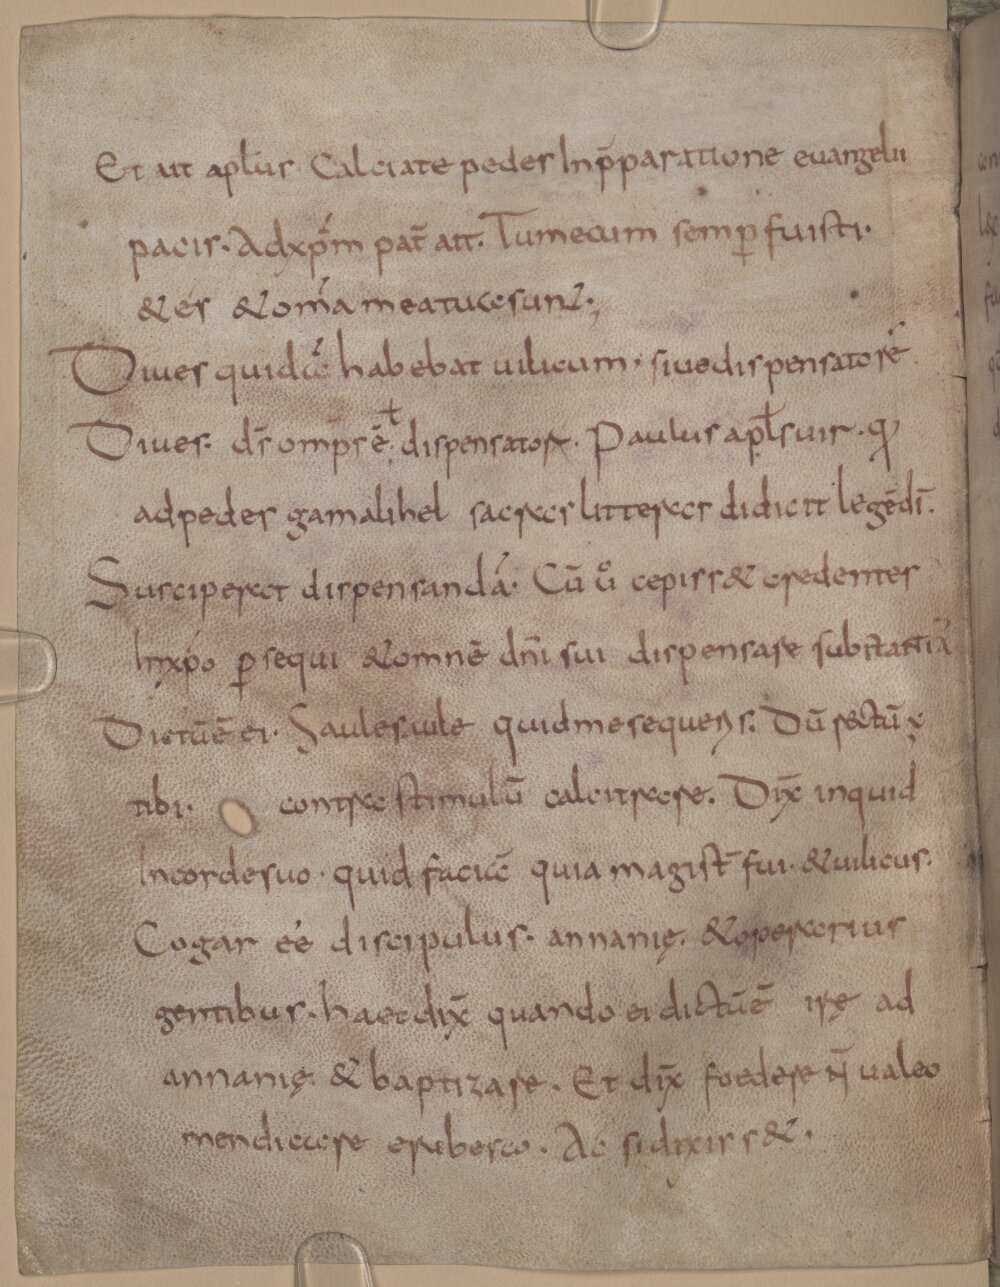 Et ait apl̅us. Calciate pedes Inp̅paratione euangelii
pacis. Adxp̅m pat̅ ait. Tumecum semp̲ fuisti.
& es & om̅a meatuasunt;
Diues quidā habebat uilicum. siuedispensatorē
Diues. ds̅ omps̅ ē. dispensator. Paulus apl̅s uir. q
adpedes gamalihel sacras litteras didicit legēdi.
Susciperat dispensandā. Cū ů cepiss& credentes
Inxp̅o p̲sequi & omnē dn̅i sui dispensare substātiā
Dictūē ei. Saulesaule quidmesequeris. Dū rectū ÷
tibi. contra stimulū calcitrare. Dix̅ inquid
Incordesuo. quid faciā quia magist̅ fui. & uilicus.
Cogar ēē discipulus. annanię. & operarius
gentibus. haecdix̅ quando ei dictūē ire ad
annanię. & baptizare. Et dix̅ foedere n̅ ualeo
mendicare erubesco. Ac sidixiss&.